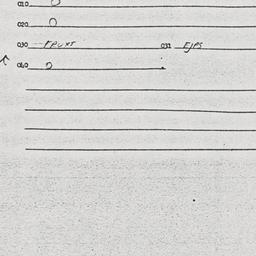 010 0
020 0
030 FPUXT 031 EJPS
040 0